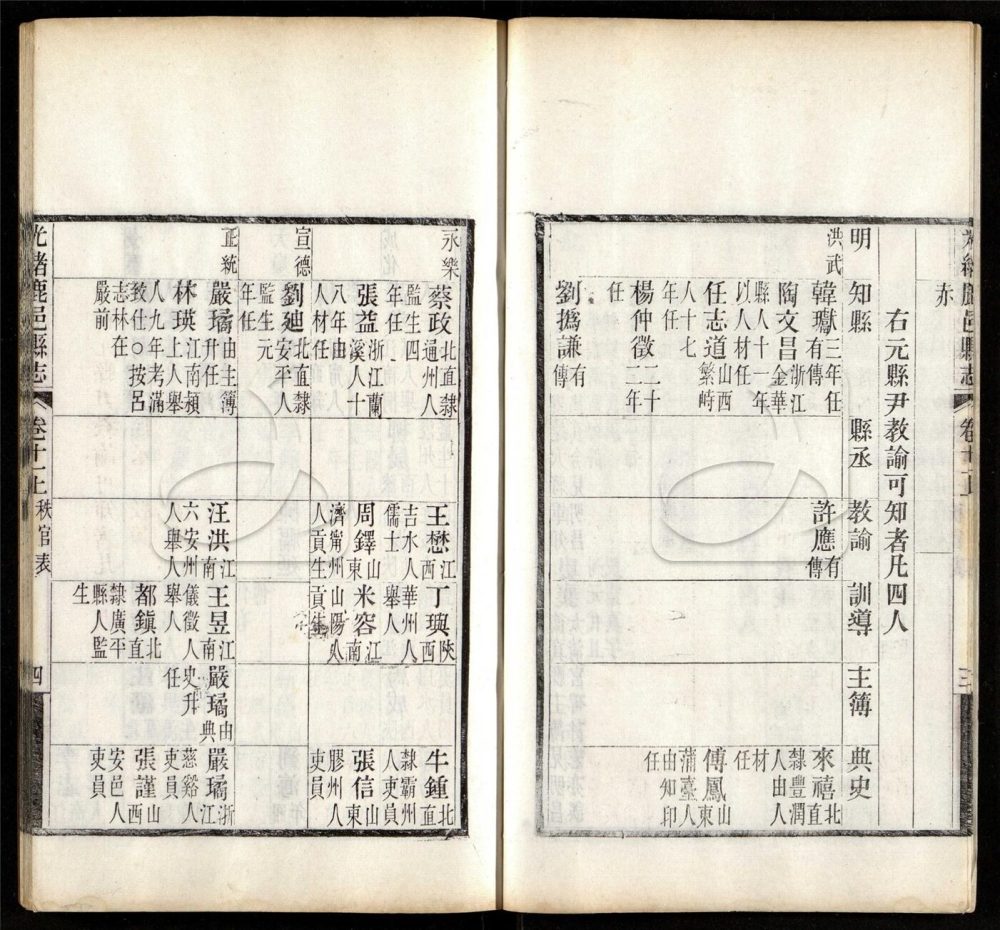 赤
右元縣尹教諭可知者凡四人
明 知縣 縣丞 教諭 訓導 主簿 典史
洪武
韓瓛三年任有傳
陶文昌浙江金華縣人十一年以人材任
任志道山西繁峙人十七年任
楊仲徵二十二年任
劉撝謙有傳
許應有傳
來禧北直隸豐潤人由人材任
傅鳳山東蒲臺人由知印任
永樂
蔡政北直隸通州人監生四年任
張益浙江蘭溪人十八年由人材任
王懋江西吉水人儒士
周鐸山東濟甯州人貢生
丁璵陝西華州人舉人
米容江南山陽人貢生
牛鍾北直隸霸州人吏員
張信山東膠州人吏員
宣德
劉廸北直隸安平人監生元年任
正統
嚴璚由主簿升任
林瑛江南潁上人舉人九年考滿致仕○按呂志林在嚴前
汪洪江南六安州人舉人
王昱江南儀徵人舉人
都鎮北直隸廣平縣人監生
嚴璚由典史升任
嚴璚浙江慈谿人吏員
張謹山西安邑人吏員
光緒鹿邑縣志 卷十一上 秩官表 四